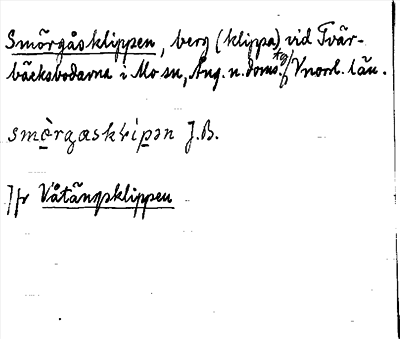 Smörgåsklippen, berg (klippa) vid Tvär-
bäcksbodarna i Mo sn, Ång. n. doms. /Vnorl. län.
smörgaskripən J.B.
Jfr Våtängsklippen